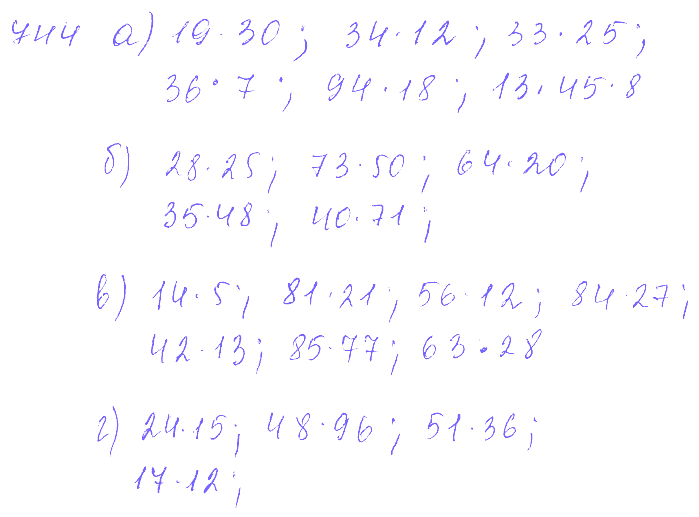 744 а) 19·30; 34·12; 33·25;
36·7; 94·18; 13·45·8
б) 28·25; 73·50; 64·20;
35·48; 40·71;
в) 14·5; 81·21; 56·12; 84·27;
42·13; 85·77; 63·28
г) 24·15; 48·96; 51·36;
17·12;